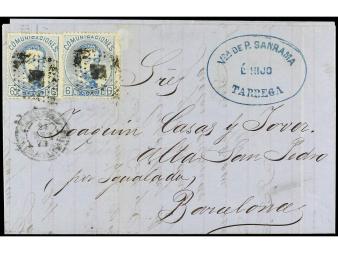 COMUNICACIONES COMUNICACIONES
6 6 6
Vda DE P. SANRAMA
É HIJO
TARREGA
Sres
Joaquin Casas y Jover.
Alta San Pedro
(por Igualada)
Barcelona